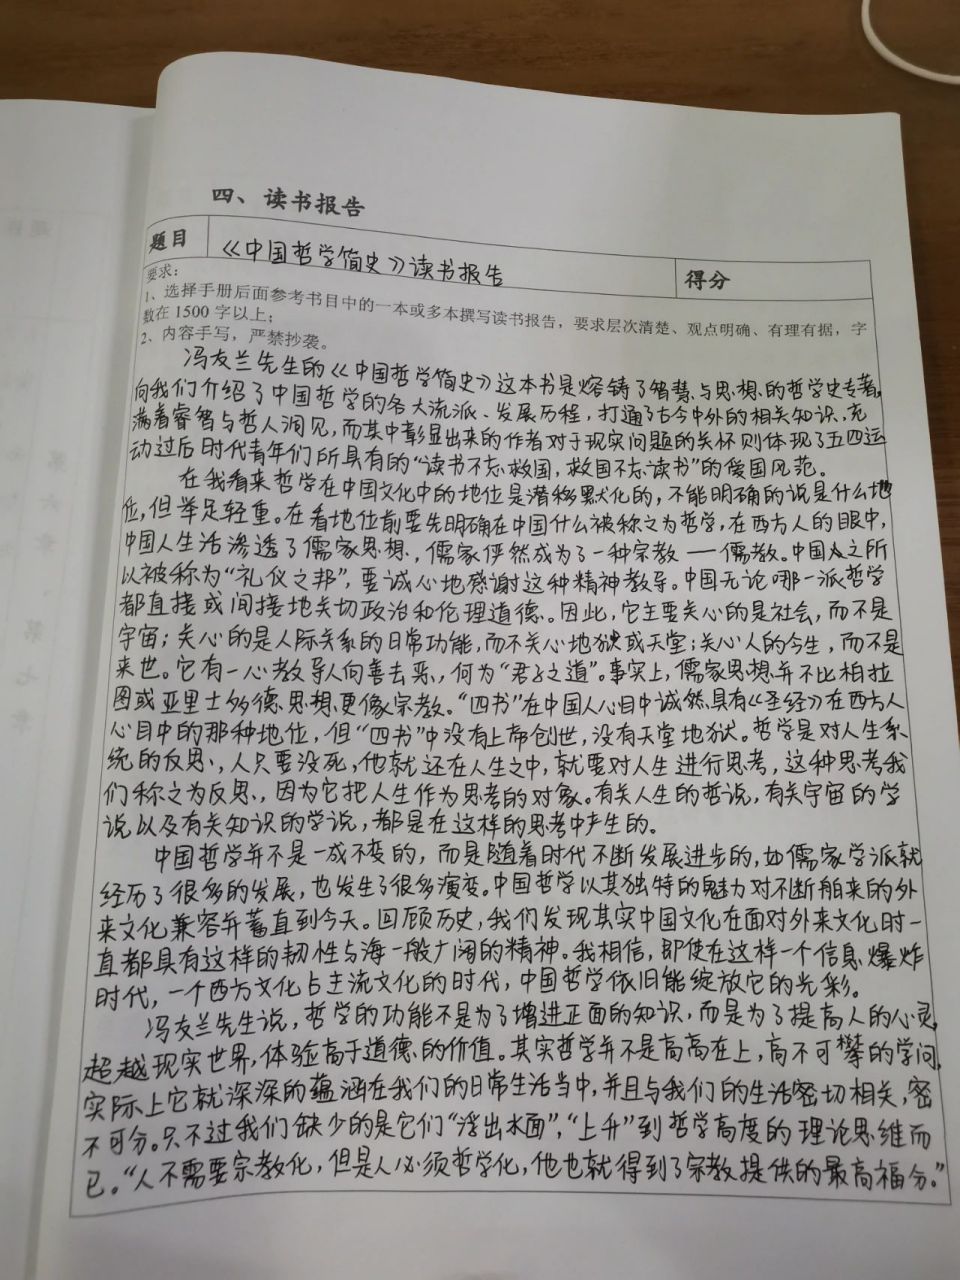 四、读书报告
题目
《中国哲学简史》读书报告
得分
要求：
1、选择手册后面参考书目中的一本或多本撰写读书报告，要求层次清楚、观点明确、有理有据，字
数在 1500 字以上；
2、内容手写，严禁抄袭。
冯友兰先生的《中国哲学简史》这本书是熔铸了智慧与思想的哲学史专著，
向我们介绍了中国哲学的各大流派、发展历程，打通了古今中外的相关知识，充
满着睿智与哲人洞见，而其中彰显出来的作者对于现实问题的关怀则体现了五四运
动过后时代青年们所具有的“读书不忘救国，救国不忘读书”的爱国风范。
在我看来哲学在中国文化中的地位是潜移默化的，不能明确的说是什么地
位，但举足轻重。在看地位前要先明确在中国什么被称之为哲学，在西方人的眼中，
中国人生活渗透了儒家思想，儒家俨然成为了一种宗教——儒教。中国人之所
以被称为“礼仪之邦”，要诚心地感谢这种精神教导。中国无论哪一派哲学
都直接或间接地关切政治和伦理道德。因此，它主要关心的是社会，而不是
宇宙；关心的是人际关系的日常功能，而不关心地狱或天堂；关心人的今生，而不是
来世。它有一心教导人向善去恶，何为“君子之道”。事实上，儒家思想并不比柏拉
图或亚里士多德思想更像宗教。“四书”在中国人心目中诚然具有《圣经》在西方人
心目中的那种地位，但“四书”中没有上帝创世，没有天堂地狱。哲学是对人生系
统的反思，人只要没死，他就还在人生之中，就要对人生进行思考，这种思考我
们称之为反思，因为它把人生作为思考的对象。有关人生的哲说，有关宇宙的学
说以及有关知识的学说，都是在这样的思考中产生的。
中国哲学并不是一成不变的，而是随着时代不断发展进步的，如儒家学派就
经历了很多的发展，也发生了很多演变。中国哲学以其独特的魅力对不断舶来的外
来文化兼容并蓄直到今天。回顾历史，我们发现其实中国文化在面对外来文化时一
直都具有这样的韧性与海一般广阔的精神。我相信，即使在这样一个信息爆炸
时代，一个西方文化占主流文化的时代，中国哲学依旧能绽放它的光彩。
冯友兰先生说，哲学的功能不是为了增进正面的知识，而是为了提高人的心灵，
超越现实世界，体验高于道德的价值。其实哲学并不是高高在上，高不可攀的学问，
实际上它就深深的蕴涵在我们的日常生活当中，并且与我们的生活密切相关，密
不可分。只不过我们缺少的是它们“浮出水面”，“上升”到哲学高度的理论思维而
已。“人不需要宗教化，但是人必须哲学化，他也就得到了宗教提供的最高福分。”